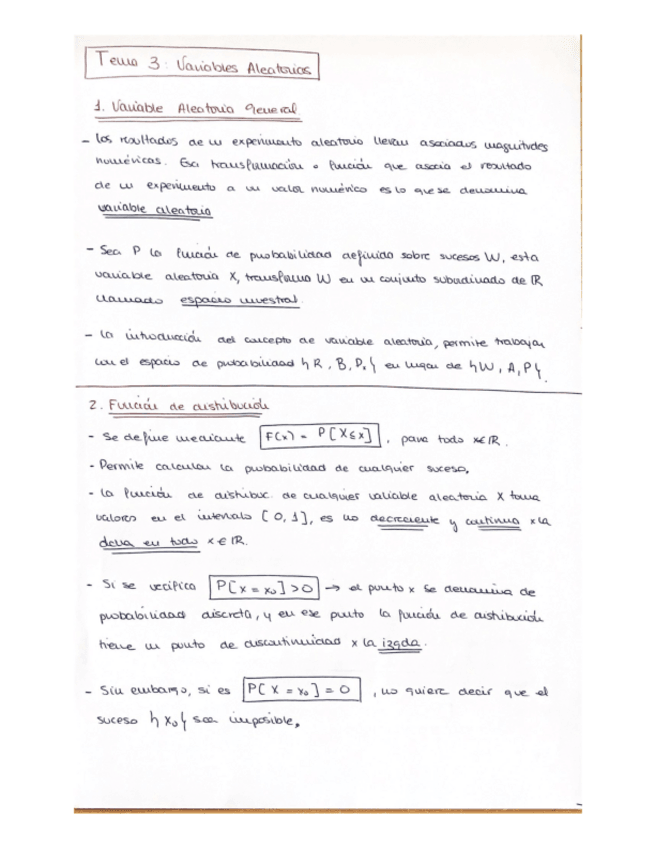 Tema 3: Variables Aleatorias
1. Variable Aleatoria General
- Los resultados de un experimento aleatorio llevan asociados magnitudes
numéricas. Esa transformación o función que asocia el resultado
de un experimento a un valor numérico es lo que se denomina
variable aleatoria
- Sea P la función de probabilidad definida sobre sucesos W, esta
variable aleatoria X, transforma W en un conjunto subordinado de ℝ
llamado espacio muestral.
- La introducción del concepto de variable aleatoria, permite trabajar
con el espacio de probabilidad {R, B, Pₓ} en lugar de {W, A, P}.
2. Función de distribución
- Se define mediante F(x) = P[X≤x], para todo x∈ℝ.
- Permite calcular la probabilidad de cualquier suceso,
- La función de distribuc. de cualquier variable aleatoria X toma
valores en el intervalo [0,1], es no decreciente y continua x la
dcha en todo x∈ℝ.
- Si se verifica P[X = x₀] > 0 → el punto x se denomina de
probabilidad discreta, y en ese punto la función de distribución
tiene un punto de discontinuidad x la izqda.
- Sin embargo, si es P[X = x₀] = 0, no quiere decir que el
suceso {x₀} sea imposible,